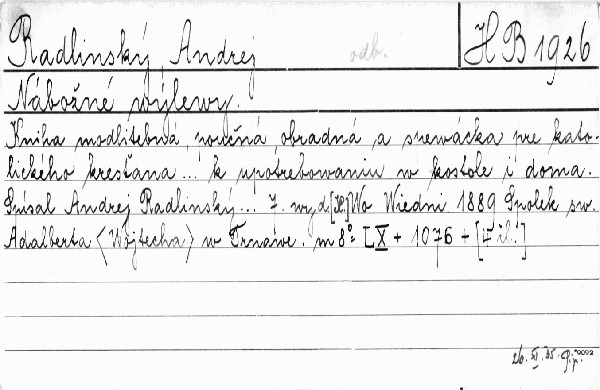 Radlinský, Andrej odb. HB 1926
Nábožné wýlewy.
Kniha modlitebná, poučná obradná, a spewácka pre kato-
lického kresťana... k upotrebowaniu w kostole i doma.
Spísal Andrej Radlinský... 7. wyd. Wo Wiedni 1889 Spolek sw.
Adalberta <Wojtecha> w Trnawe. m 8° [X + 1076 +